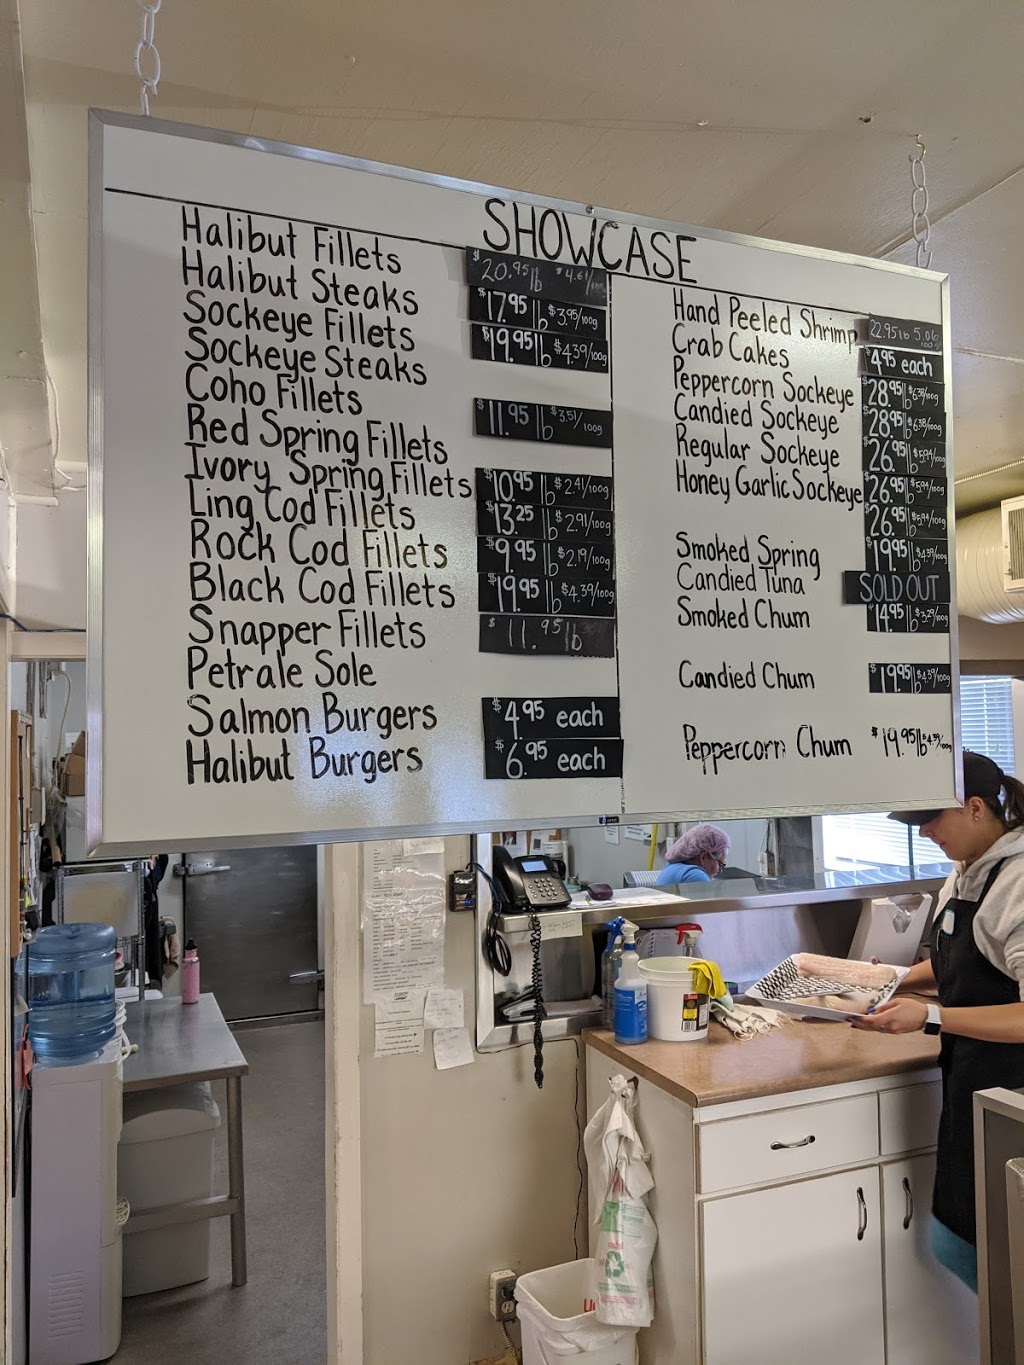 SHOWCASE
Halibut Fillets $20.95 lb $4.61/100g
Halibut Steaks $17.95 lb $3.95/100g
Sockeye Fillets $19.95 lb $4.39/100g
Sockeye Steaks
Coho Fillets $11.95 lb $3.51/100g
Red Spring Fillets
Ivory Spring Fillets $10.95 lb $2.41/100g
Ling Cod Fillets $13.25 lb $2.91/100g
Rock Cod Fillets $9.95 lb $2.19/100g
Black Cod Fillets $19.95 lb $4.39/100g
Snapper Fillets $11.95 lb
Petrale Sole
Salmon Burgers $4.95 each
Halibut Burgers $6.95 each
Hand Peeled Shrimp 22.95 lb 5.06 100g
Crab Cakes $4.95 each
Peppercorn Sockeye $28.95 lb $6.38/100g
Candied Sockeye $28.95 lb $6.38/100g
Regular Sockeye $26.95 lb $5.94/100g
Honey Garlic Sockeye $26.95 lb $5.94/100g
$26.95 lb $5.94/100g
Smoked Spring $19.95 lb $4.39/100g
Candied Tuna SOLD OUT
Smoked Chum $14.95 lb $3.29/100g
Candied Chum $19.95 lb $4.39/100g
Peppercorn Chum $19.95 lb $4.39/100g